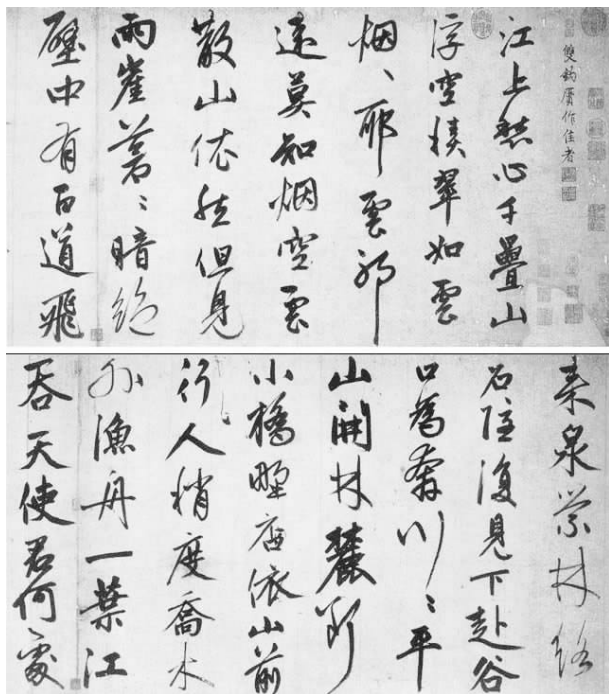 雙鈎贋作佳者
江上愁心千疊山
浮空積翠如雲
烟、耶雲耶
遠莫知烟空雲
散山依然但見
兩崖蒼、暗絕
壁中有百道飛
來泉縈林絡
石隱復見下赴谷
口為奔川、平
山開林麓斷
小橋野店依山前
行人稍度喬木
外漁舟一葉江
吞天使君何處